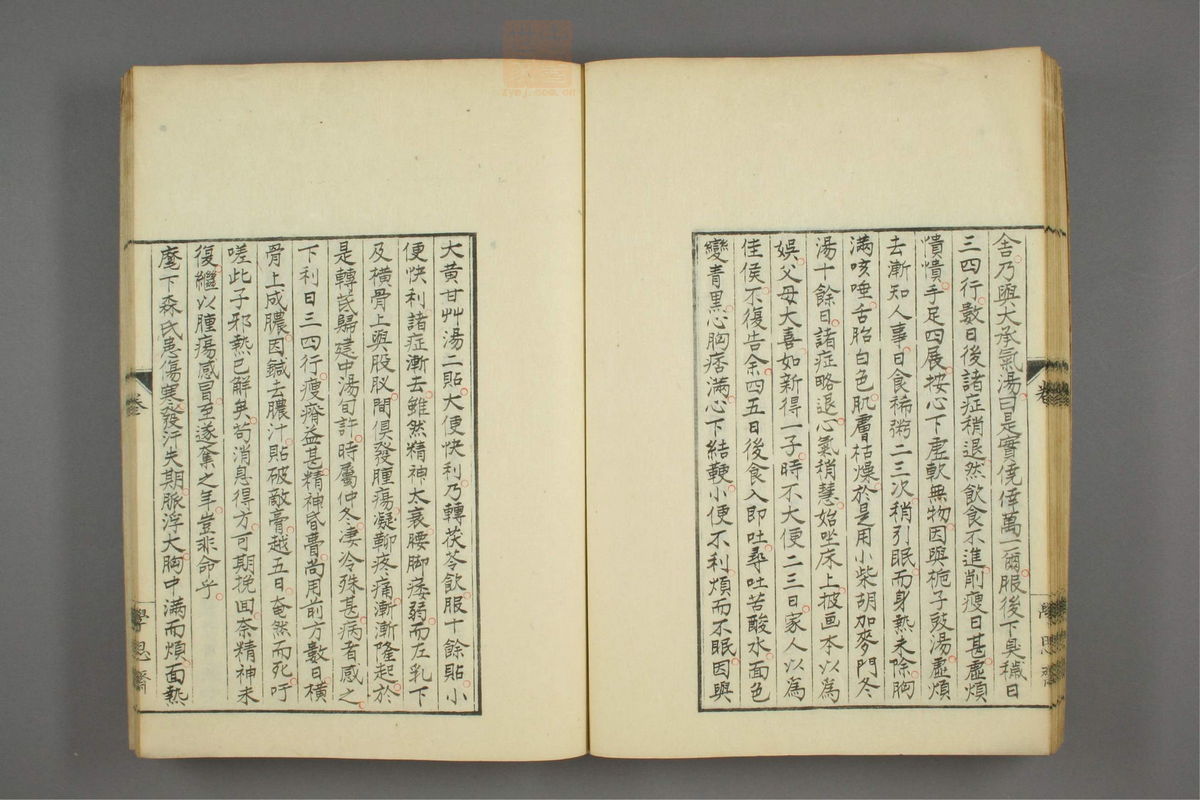 舎乃與大承氣湯曰是實僥倖萬一爾服後下臭穢日
三四行數日後諸症稍退然飲食不進削瘦日甚虛煩
憒憒手足四展按心下虛軟無物因與梔子豉湯虛煩
去漸知人事日食稀粥二三次稍引眠而身熱未除胸
滿咳唾舌胎白色肌膚枯燥於是用小柴胡加麥門冬
湯十餘日諸症略退心氣稍慧始坐床上披画本以為
娯父母大喜如新得一子時不大便二三日家人以為
佳侯不復告余四五日後食入即吐尋吐苦酸水面色
變青黒心胸痞滿心下結鞕小便不利煩而不眠因與
卷
學思齋
大黄甘艸湯二貼大便快利乃轉茯苓飲服十餘貼小
便快利諸症漸去雖然精神太衰腰脚痿弱而左乳下
及橫骨上與股肶間倶發腫瘍凝鞕疼痛漸漸隆起於
是轉芪歸建中湯旬許時屬仲冬凄冷殊甚病者感之
下利日三四行瘦瘠益甚精神昏瞢尚用前方數日橫
骨上成膿因鍼去膿汁貼破敵膏越五日奄然而死吁
嗟此子邪熱已解矣苟消息得方可期挽回奈精神未
復繼以腫瘍感冒至遂奪之年豈非命乎
麾下森氏患傷寒發汗失期脈浮大胸中滿而煩面熱
卷
學思齋